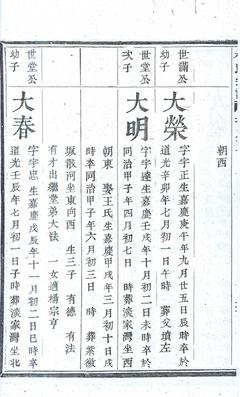 朝西
世蒲公幼子
大榮
字宇正生嘉慶庚午年九月廿五日辰時卒於
道光辛卯年七月初一日午時 葬父墳左
世堂公次子
大明
字宇達生嘉慶壬戌年十月初二日未時卒於
同治甲子年四月初七日 時葬淡家灣坐西
朝東 娶王氏生嘉慶甲戌年三月初十日戌
時卒同治甲子年六月初三日 時 葬紫微
城散河坐東向西 生三子 有德 有法
有才出繼堂弟大法 一女適楊宗亨
世堂公幼子
大春
字宇思生嘉慶戊辰年十一月初二日巳時卒
道光壬辰年七月初一日子時葬淡家灣坐北